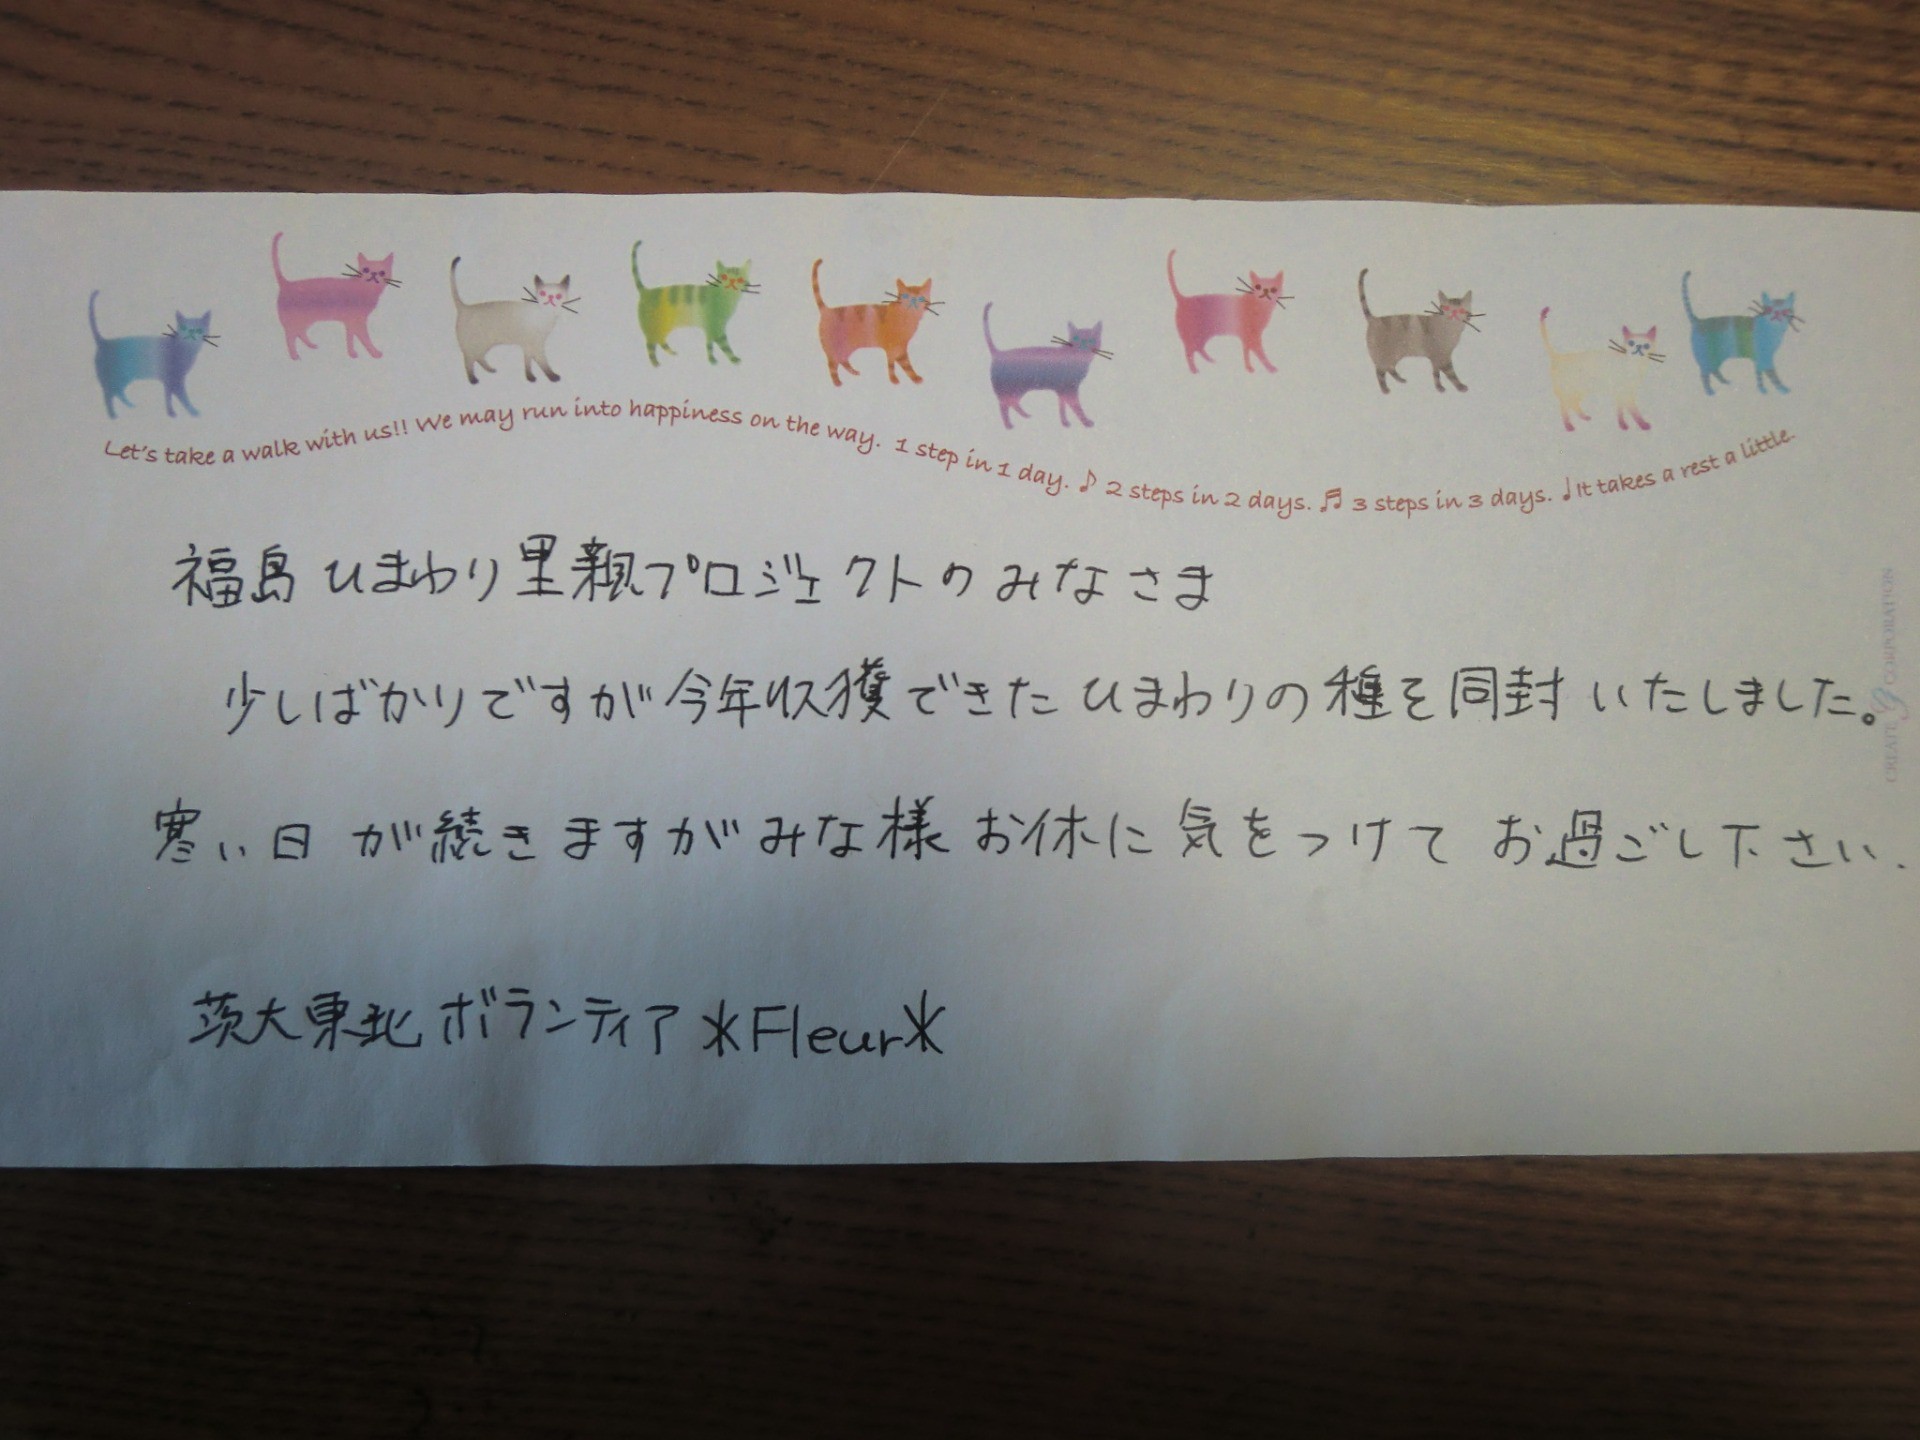 Let's take a walk with us!! We may run into happiness on the way. 1 step in 1 day. ♪ 2 steps in 2 days. ♬ 3 steps in 3 days. ♩It takes a rest a little.
福島ひまわり里親プロジェクトのみなさま
少しばかりですが今年収獲できたひまわりの種を同封いたしました。
寒い日が続きますがみな様お体に気をつけてお過ごし下さい.
茨大東北ボランティア*Fleur*
CREATE G CORPORATION